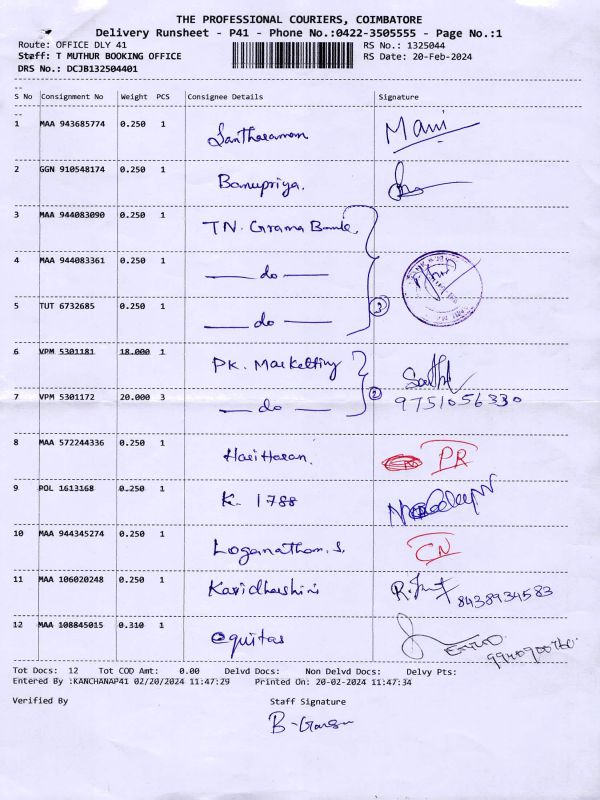 THE PROFESSIONAL COURIERS, COIMBATORE
Delivery Runsheet - P41 - Phone No.:0422-3505555 - Page No.:1
Route: OFFICE DLY 41 RS No.: 1325044
Staff: T MUTHUR BOOKING OFFICE RS Date: 20-Feb-2024
DRS No.: DCJB132504401
S No Consignment No Weight PCS Consignee Details Signature
1 MAA 943685774 0.250 1 Santharamam Mani
2 GGN 910548174 0.250 1 Banupriya.
3 MAA 944083090 0.250 1 TN. Grama Bank,
4 MAA 944083361 0.250 1 — do —
5 TUT 6732685 0.250 1 — do — 3
6 VPM 5301181 18.000 1 PK. Marketting
7 VPM 5301172 20.000 3 — do — 2 9751056330
8 MAA 572244336 0.250 1 Hari Haran. PR
9 POL 1613168 0.250 1 K. 1788
10 MAA 944345274 0.250 1 Loganathan. S. CN
11 MAA 106020248 0.250 1 Kavidharshini 8438934583
12 MAA 108845015 0.310 1 equitas 9940900760
Tot Docs: 12 Tot COD Amt: 0.00 Delvd Docs: Non Delvd Docs: Delvy Pts:
Entered By :KANCHANAP41 02/20/2024 11:47:29 Printed On: 20-02-2024 11:47:34
Verified By Staff Signature